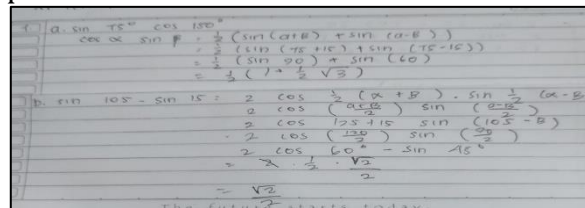 1. a. sin 75° cos 150°
cos α sin β = 1/2 (sin (α+β) + sin (α-β))
= 1/2 (sin (75+15) + sin (75-15))
= 1/2 (sin 90) + sin (60)
= 1/2 (1 + 1/2 √3)
b. sin 105 - sin 15 = 2 cos 1/2 (α + β) . sin 1/2 (α - β
2 cos (α+β/2) sin (α-β/2)
2 cos 125 + 15 sin (105 - B)
= 2 cos (120/2) sin (90/2)
2 cos 60° - sin 45°
= 2 . 1/2 . √2/2
= √2/2
The future starts today